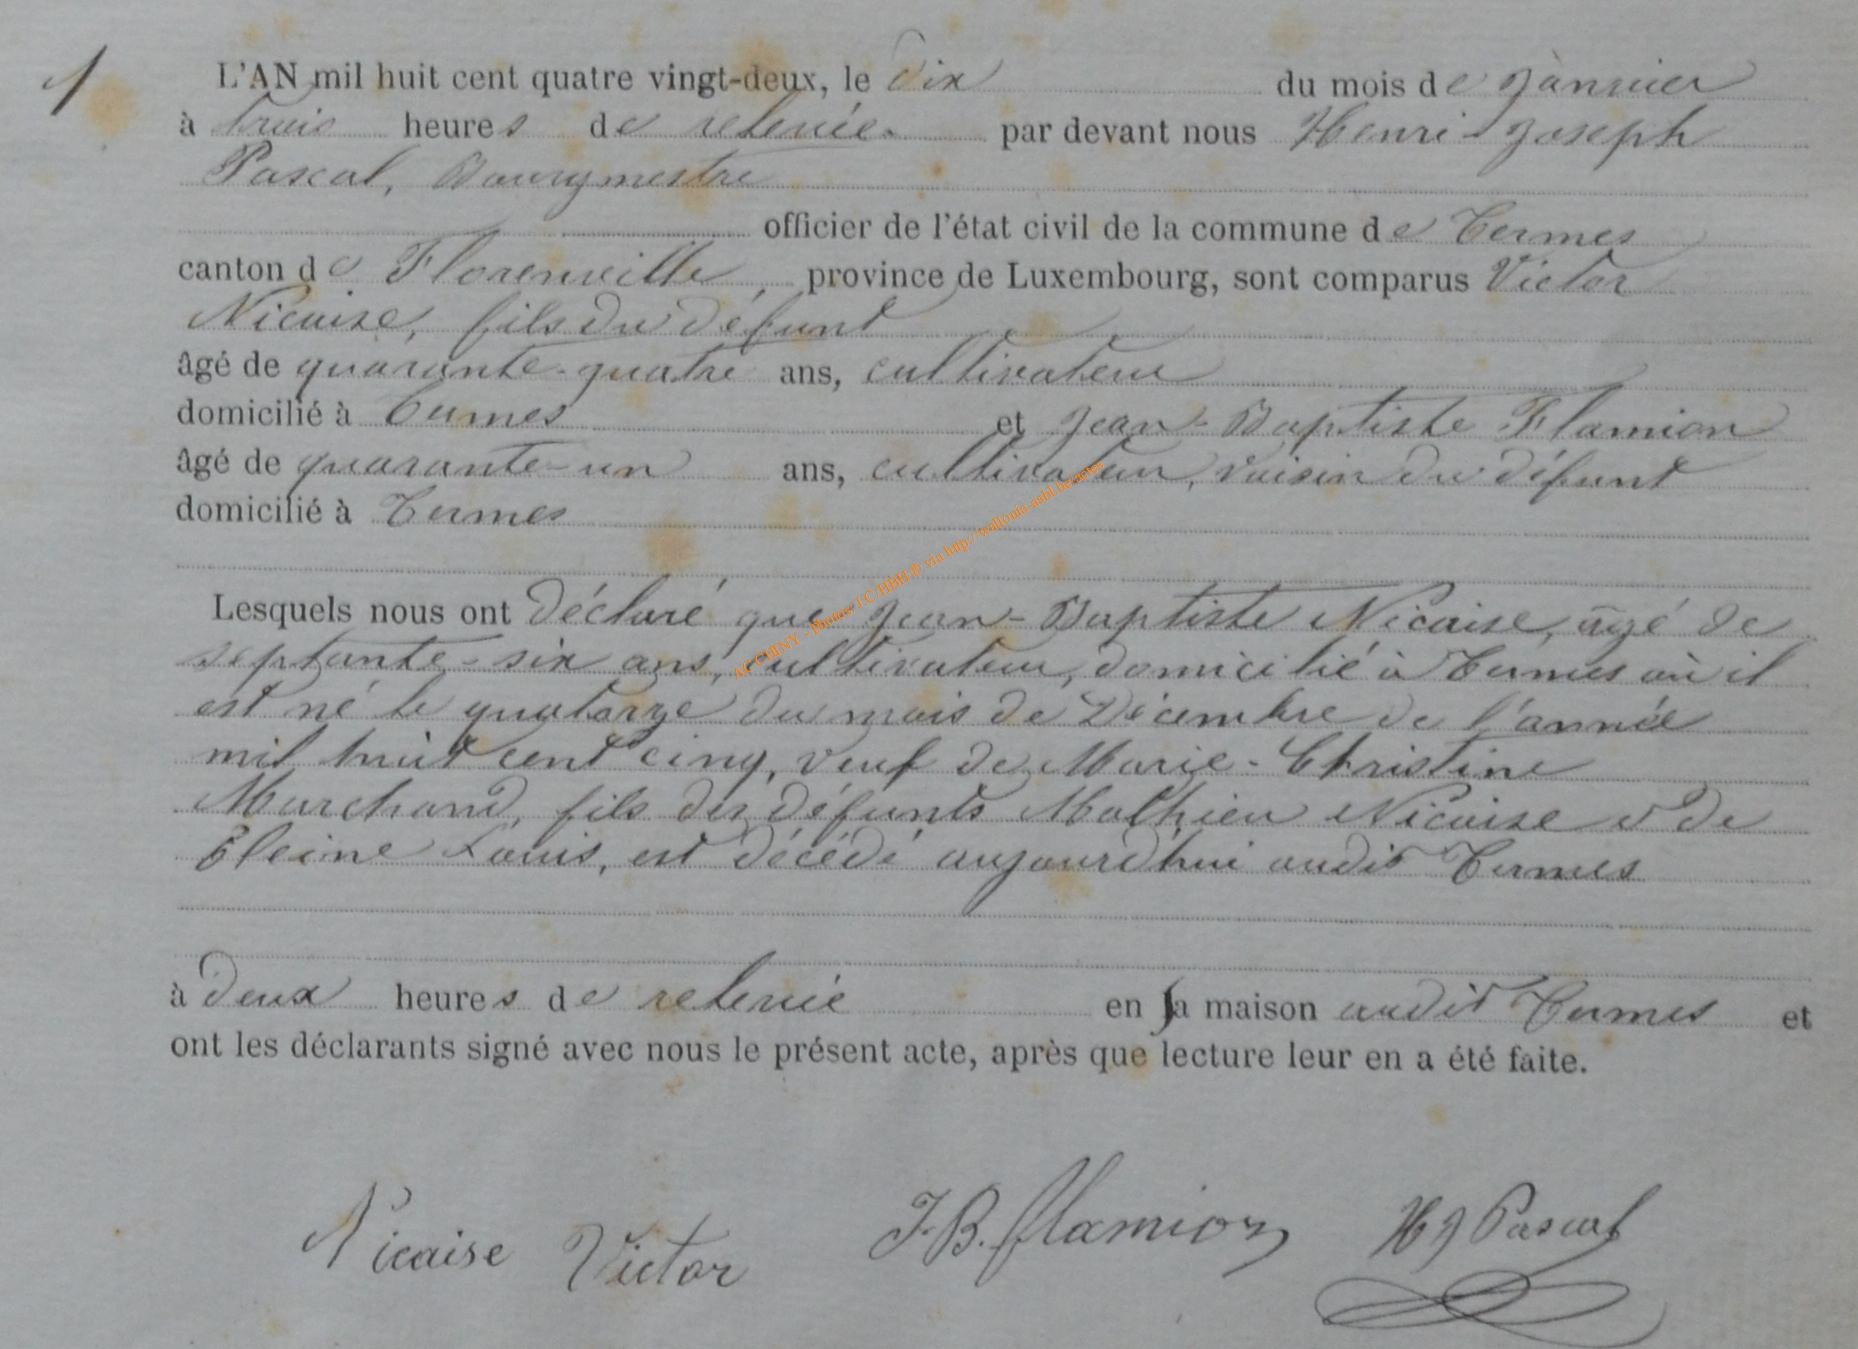 1
L'AN mil huit cent quatre vingt-deux, le dix du mois de Janvier
à trois heures de relevée. par devant nous Henri-Joseph
Pascal, Bourgmestre
officier de l'état civil de la commune de Termes
canton de Florenville, province de Luxembourg, sont comparus Victor
Nicaise, fils du défunt
âgé de quarante-quatre ans, cultivateur
domicilié à Termes et Jean-Baptiste Flamion
âgé de quarante-un ans, cultivateur, voisin du défunt
domicilié à Termes
Lesquels nous ont déclaré que Jean-Baptiste Nicaise, âgé de
septante-six ans, cultivateur, domicilié à Termes où il
est né le quatorze du mois de Décembre de l'année
mil huit cent cinq, veuf de Marie-Christine
Marchand, fils des défunts Mathieu Nicaise et de
Louis, est décédé aujourd'hui audit Termes
à deux heures de relevée en sa maison audit Termes et
ont les déclarants signé avec nous le présent acte, après que lecture leur en a été faite.
Nicaise Victor J.B. flamion HJ Pascal
ACCUHNY - Photos TC-HBH © via http://wallonia-asbl.be/actes